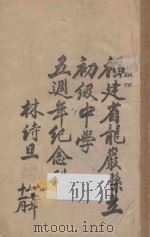 福建省龍巖縣立
初級中學
五週年紀念刊
林詩旦